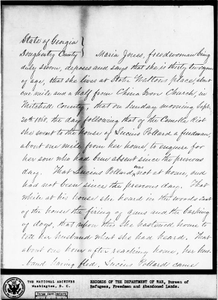 State of Georgia
Dougherty County
Maria Jones freedwoman being
duly sworn, deposes and says that she is thirty two years
of age, that she lives at Walters place, about
one mile and a half from China Grove Church, in
Mitchell County; that on Sunday morning Sept
20th 1868, the day following that of the Camilla Riot
she went to the house of Lucius Pollard, a freedman,
about one mile from her home to enquire for
her son who had been absent since the previous
day. That Lucius Pollard was not at home, and
had not been since the previous day. That
while at his house she heard in the woods east
of the house the firing of guns and the barking
of dogs, that when she she hastened home to
her husband what she had heard. That
about an hour after reaching home, her hus-
band having fled, Lucius Pollard came
THE NATIONAL ARCHIVES
Washington, D. C.
RECORDS OF THE DEPARTMENT OF WAR, Bureau of
Refugees, Freedmen and Abandoned Lands.